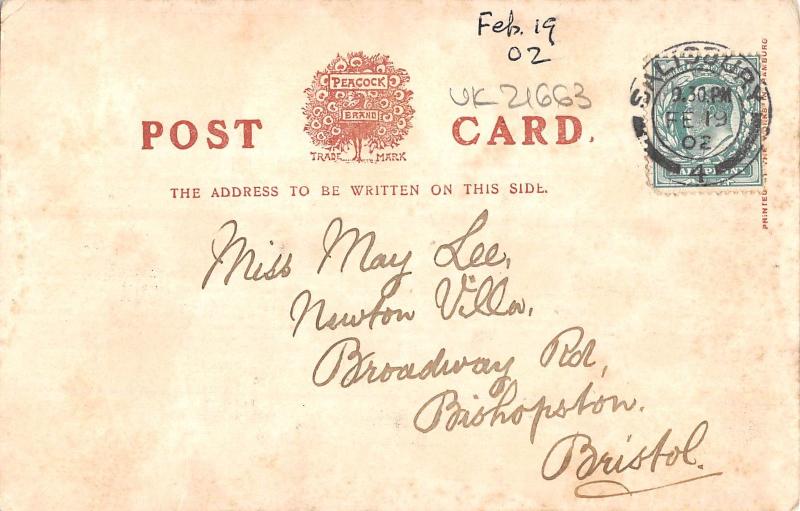 Feb. 19
02
UK 21663
PEACOCK
BRAND
TRADE MARK
POST CARD.
THE ADDRESS TO BE WRITTEN ON THIS SIDE.
SALISBURY
9.30.PM
FE 19
02
1
Miss May Lee,
Newton Villa,
Broadway Rd,
Bishopston.
Bristol.